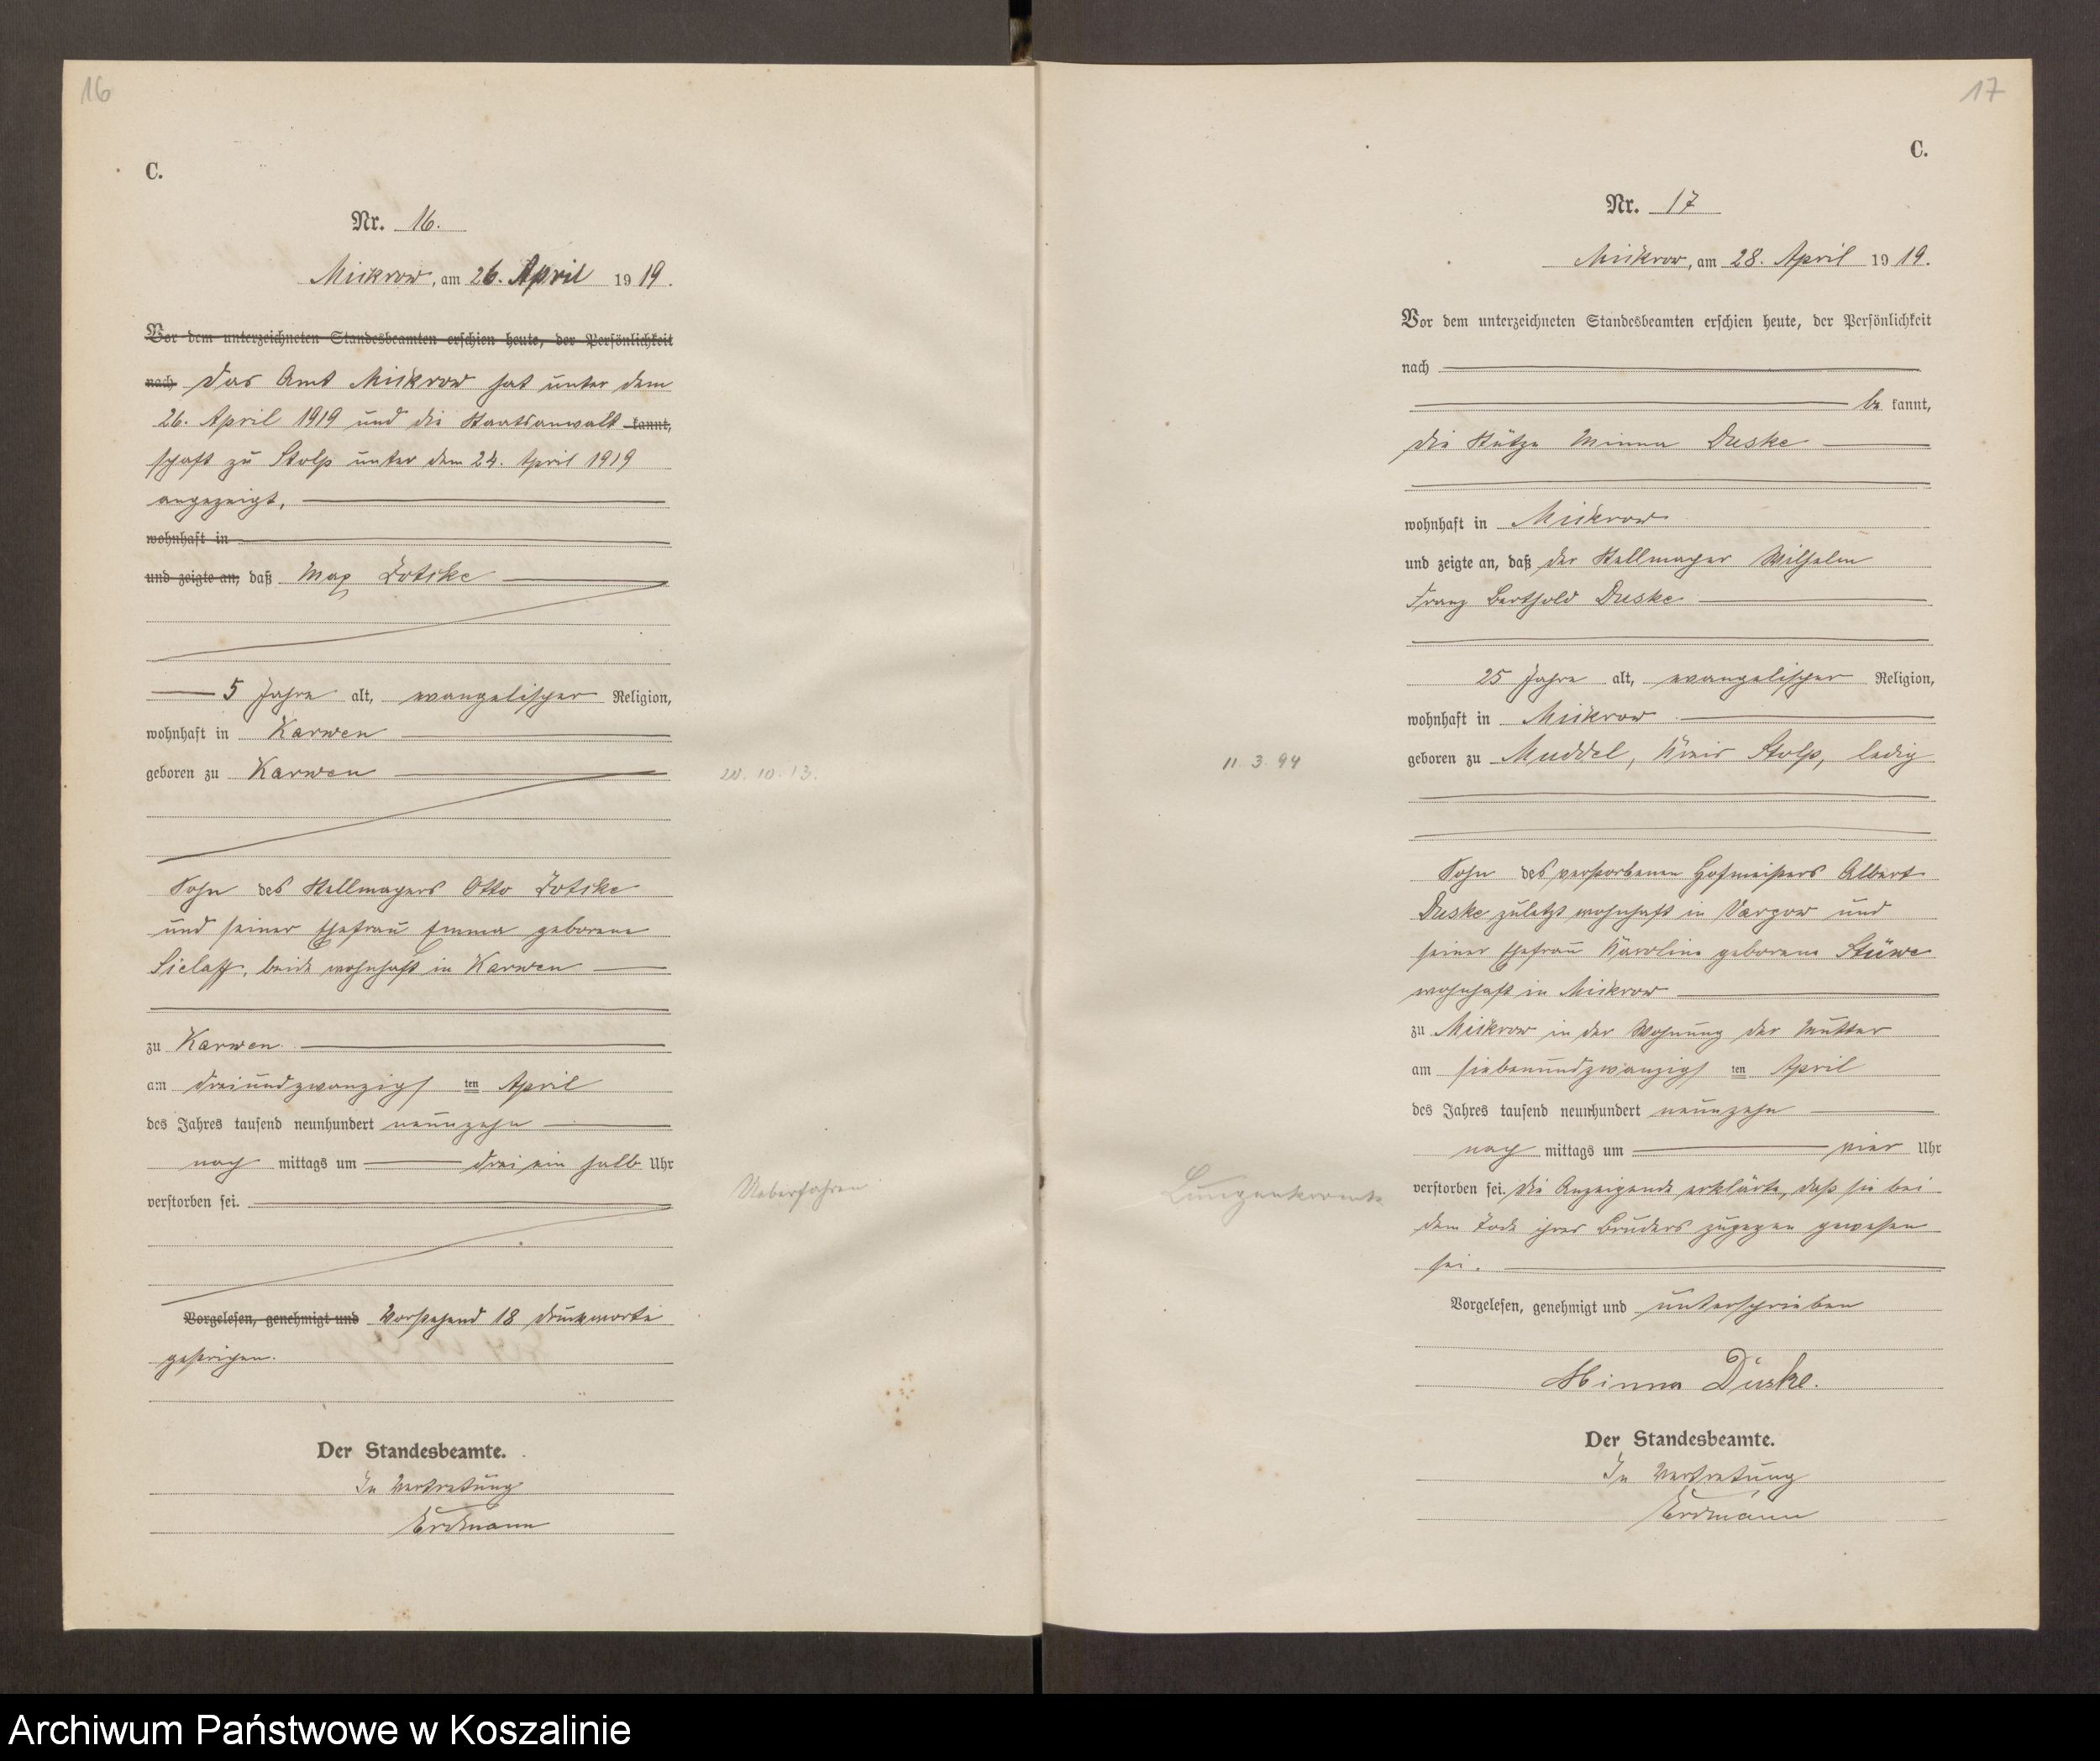 16
C.
Nr. 16.
Mickrow, am 26. April 1919.
Vor dem unterzeichneten Standesbeamten erschien heute, der Persönlichkeit
nach Das Amt Mickrow hat unter dem
26. April 1919 und die Staatsanwalt kannt,
schaft zu Stolp unter dem 24. April 1919
angezeigt,
wohnhaft in
und zeigte an, daß Max Zotzke
5 Jahre alt, evangelischer Religion,
wohnhaft in Karwen
geboren zu Karwen
20. 10. 13.
Sohn des Stellmachers Otto Zotzke
und seiner Ehefrau Emma geborene
Sielaff, beide wohnhaft in Karwen
zu Karwen
am dreiundzwanzigsten April
des Jahres tausend neunhundert neunzehn
nach mittags um drei ein halb Uhr
Ueberfahren
verstorben sei.
Vorgelesen, genehmigt und Vorstehend 18 Druckworte
gestrichen.
Der Standesbeamte.
In Vertretung
Erdmann
17
C.
Nr. 17
Mickrow, am 28. April 1919.
Vor dem unterzeichneten Standesbeamten erschien heute, der Persönlichkeit
nach
be kannt,
die Stütze Minna Duske
wohnhaft in Mickrow
und zeigte an, daß der Stellmacher Wilhelm
Franz Berthold Duske
25 Jahre alt, evangelischer Religion,
wohnhaft in Mickrow
geboren zu Muddel, Kreis Stolp, ledig
11. 3. 94
Sohn des verstorbenen Hofmeisters Albert
Duske zuletzt wohnhaft in Vargow und
seiner Ehefrau Karoline geborene Stüwe
wohnhaft in Mickrow
zu Mickrow in der Wohnung der Mutter
am siebenundzwanzigsten April
des Jahres tausend neunhundert neunzehn
nach mittags um vier Uhr
verstorben sei. Die Anzeigende erklärte, daß sie bei
dem Tode ihres Bruders zugegen gewesen
sei.
Vorgelesen, genehmigt und unterschrieben
Minna Duske.
Der Standesbeamte.
In Vertretung
Erdmann
Archiwum Państwowe w Koszalinie